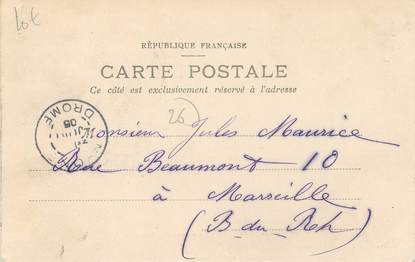 10€
RÉPUBLIQUE FRANÇAISE
CARTE POSTALE
Ce côté est exclusivement réservé à l'adresse
26
DROME
JUIN
05
Monsieur Jules Maurice
Rue Beaumont 10
à Marseille
(B du Rh)